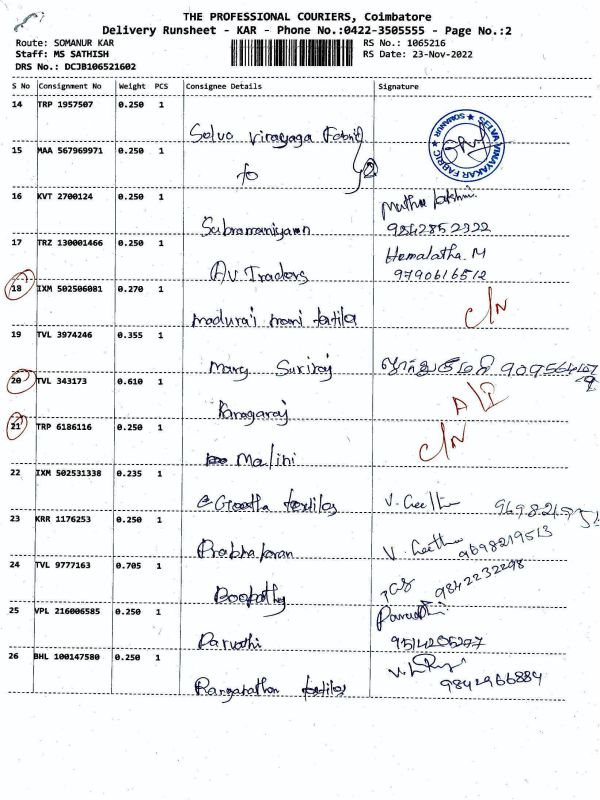 THE PROFESSIONAL COURIERS, Coimbatore
Delivery Runsheet - KAR - Phone No.:0422-3505555 - Page No.:2
Route: SOMANUR KAR
RS No.: 1065216
Staff: MS SATHISH
RS Date: 23-Nov-2022
DRS No.: DCJB106521602
S No Consignment No Weight PCS Consignee Details Signature
14 TRP 1957507 0.250 1
Selvo Vinayaga Fabric
SELVA VINAYAKAR FABRIC ★ SOMANUR ★
15 MAA 567969971 0.250 1
to 2
16 KVT 2700124 0.250 1
Subramaniyam Muthu lakshmi
9842852222
17 TRZ 130001466 0.250 1
AV Traders Hemalatha. M
9790616512
18 IXM 502506081 0.270 1
madurai mani textiles C/N
19 TVL 3974246 0.355 1
Mary Suriraj
20 TVL 343173 0.610 1
Kanagaraj
21 TRP 6186116 0.250 1
Malini C/N
22 IXM 502531338 0.235 1
Geetha textiles V. Geetha
23 KRR 1176253 0.250 1
Prabhakaran V. Geetha 9698219513
24 TVL 9777163 0.705 1
Boopathy 9842232298
25 VPL 216006585 0.250 1
Parvathi Parvathi
9514205277
26 BHL 100147580 0.250 1
Ranganathan textiles
9842966884